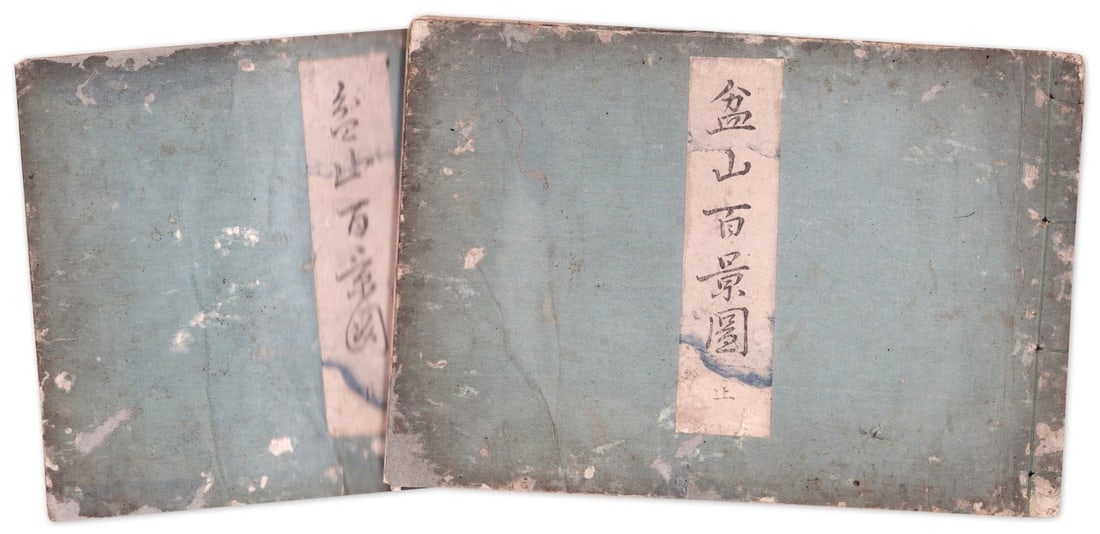 盆山百景圖
上
盆山百景圖